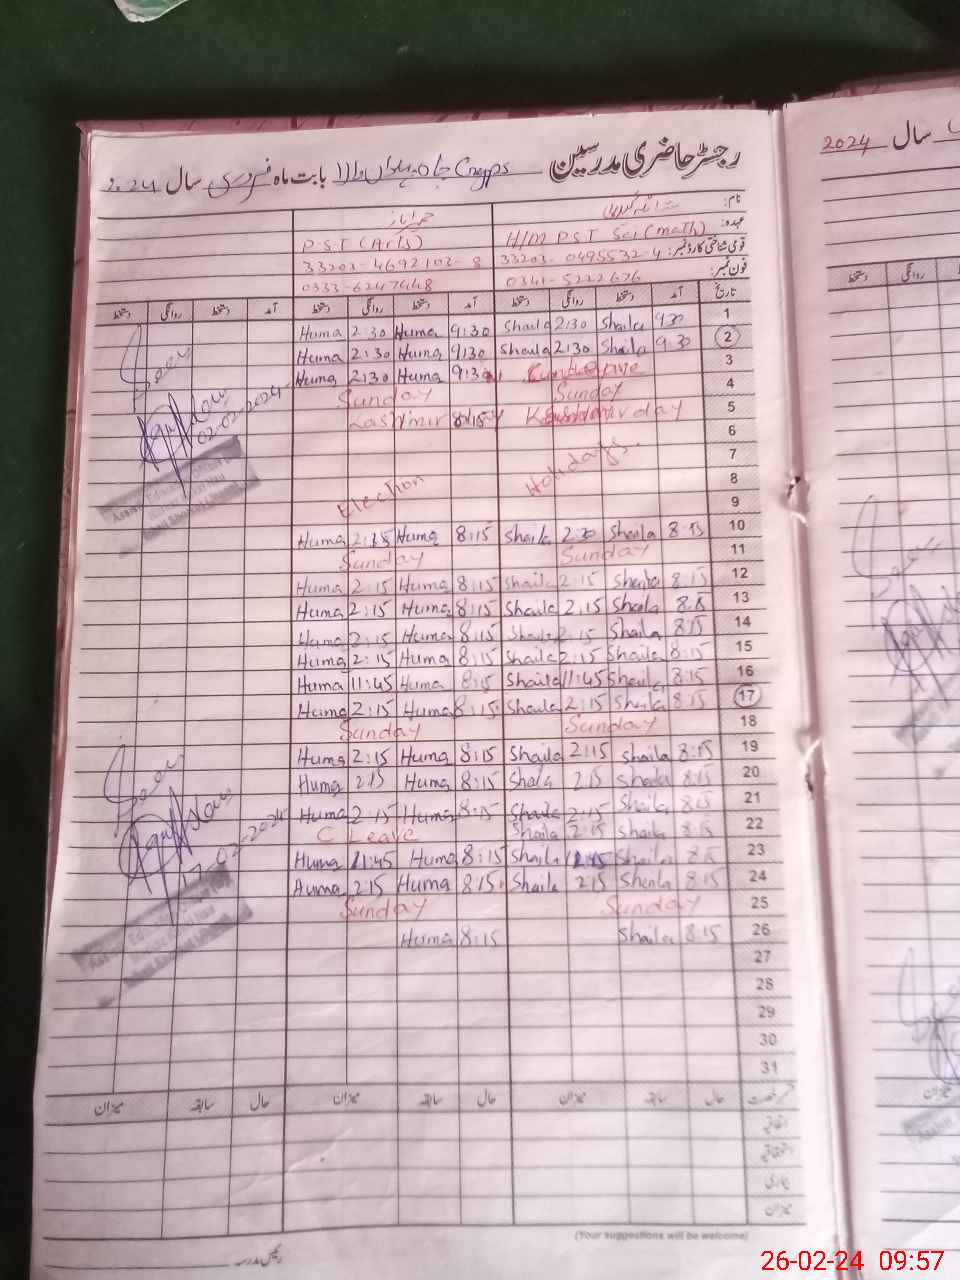 رجسٹر حاضری مدرسین Cmgpps بابت ماہ فروری سال 2024
2024 سال
نام:
عہدہ: H/M P.S.T Sci (math) P.S.T (Arts)
قومی شناختی کارڈ نمبر: 33203-0495532-4 33203-4692103-8
فون نمبر: 0341-5222626 0333-6247448
تاریخ آمد دستخط روانگی دستخط آمد دستخط روانگی دستخط آمد دستخط روانگی دستخط
Huma 2:30 Huma 9:30 Shaila 2:30 Shaila 9:30 1
Huma 2:30 Huma 9:30 Shaila 2:30 Shaila 9:30 2
Huma 2:30 Huma 9:30 3
Sunday Sunday 4
Kashmir 8:15 day 5
6
7
Election Holidays 8
9
Huma 2:15 Huma 8:15 Shaila 2:30 Shaila 8:15 10
Sunday Sunday 11
Huma 2:15 Huma 8:15 Shaila 2:15 Shaila 8:15 12
Huma 2:15 Huma 8:15 Shaila 2:15 Shaila 8:15 13
Huma 2:15 Huma 8:15 Shaila 2:15 Shaila 8:15 14
Huma 2:15 Huma 8:15 Shaila 2:15 Shaila 8:15 15
Huma 11:45 Huma 8:15 Shaila 11:45 Shaila 8:15 16
Huma 2:15 Huma 8:15 Shaila 2:15 Shaila 8:15 17
Sunday Sunday 18
Huma 2:15 Huma 8:15 Shaila 2:15 Shaila 8:15 19
Huma 2:15 Huma 8:15 Shala 2:15 Shaila 8:15 20
Huma 2:15 Huma 8:15 Shaila 2:15 Shaila 8:15 21
C Leave Shaila 2:15 Shaila 8:15 22
Huma 11:45 Huma 8:15 Shaila 11:45 Shaila 8:15 23
Huma 2:15 Huma 8:15 Shaila 2:15 Shaila 8:15 24
Sunday Sunday 25
Huma 8:15 Shaila 8:15 26
27
28
29
30
31
Seen
02-02-2024
Seen
17-02-2024
حال سابقہ میزان حال سابقہ میزان حال سابقہ میزان
اتفاقیہ
استحقاقیہ
بیماری
میزان
(Your suggestions will be welcome)
رئیس مدرسہ
26-02-24 09:57